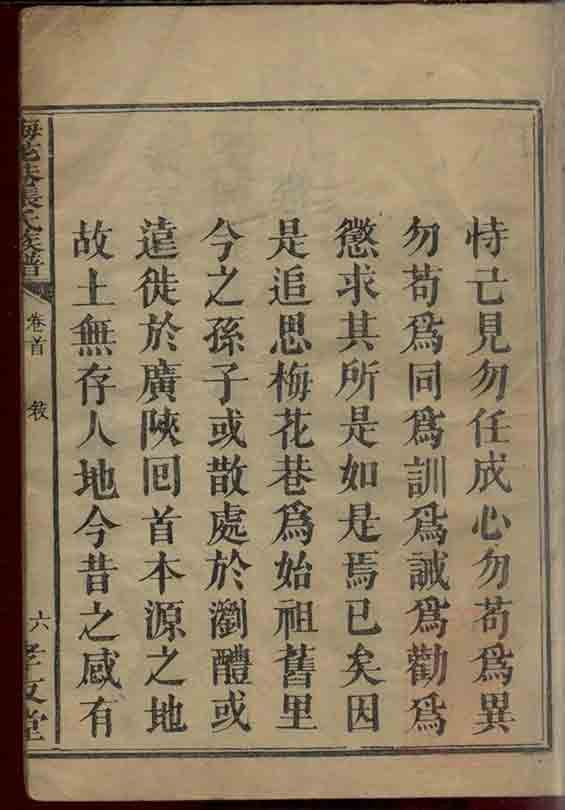 恃己見勿任成心勿苟爲異
勿苟爲同爲訓爲誡爲勸爲
懲求其所是如是焉已矣因
是追思梅花巷爲始祖舊里
今之孫子或散處於瀏醴或
遠徙於廣陝囘首本源之地
故土無存人地今昔之感有
梅花巷張氏族譜
卷首
敘
六
孝友堂